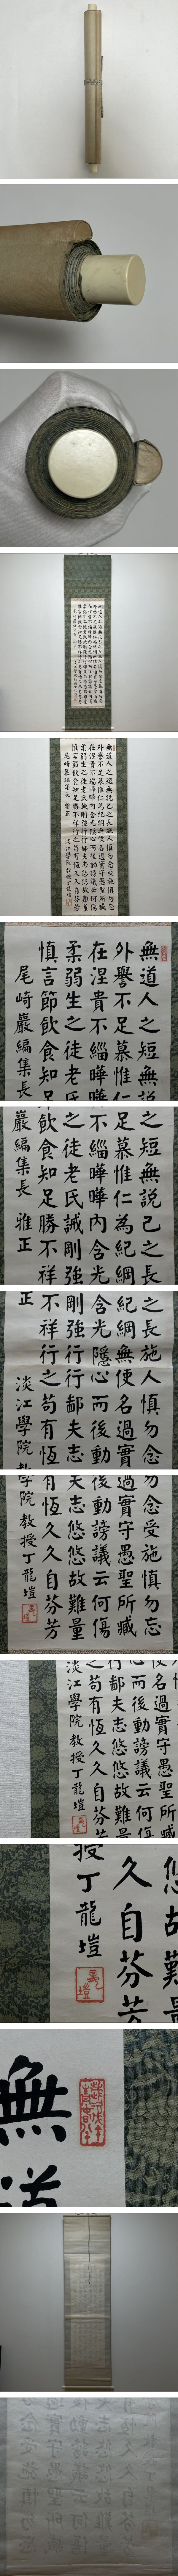 無道人之短無說己之長施人慎勿念受施慎勿忘
外譽不足慕惟仁為紀綱無使名過實守愚聖所臧
在涅貴不緇曄曄內含光隱心而後動謗議云何傷
柔弱生之徒老氏誡剛強行行鄙夫志悠悠故難量
慎言節飲食知足勝不祥行之苟有恆久久自芬芳
尾崎巖編集長 雅正 淡江學院 教授丁龍塏